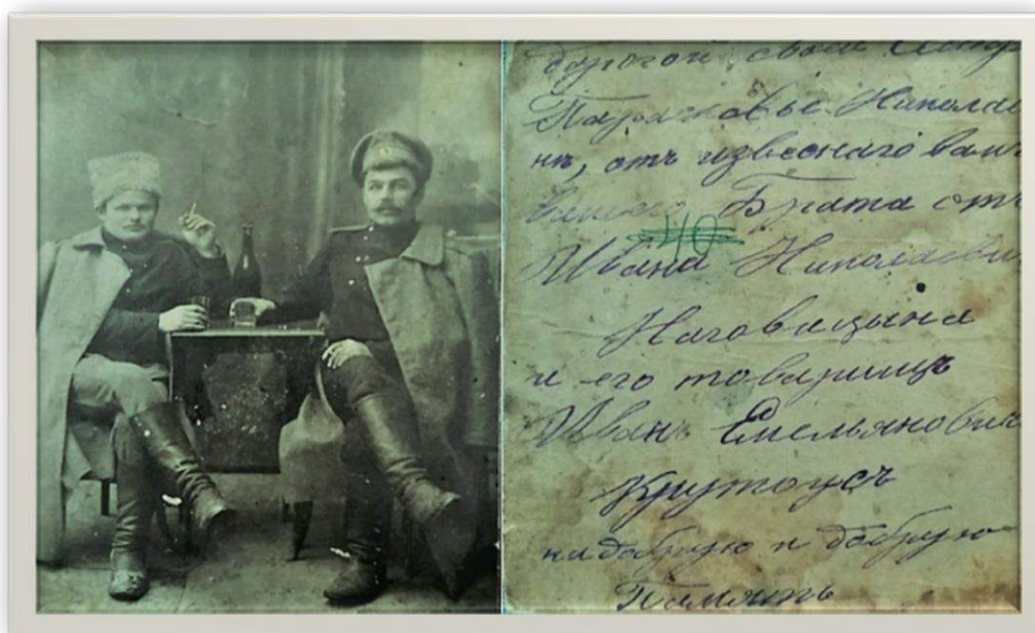 дорогой своей Сестр
Парасковье Никола
нѣ, отъ извеснаго вам
вашего Брата отъ
40
Ивана Николаеви
Наговицына
и его товарищъ
Иванъ Емельянович
Крутоусъ
на добрую и добрую
Память